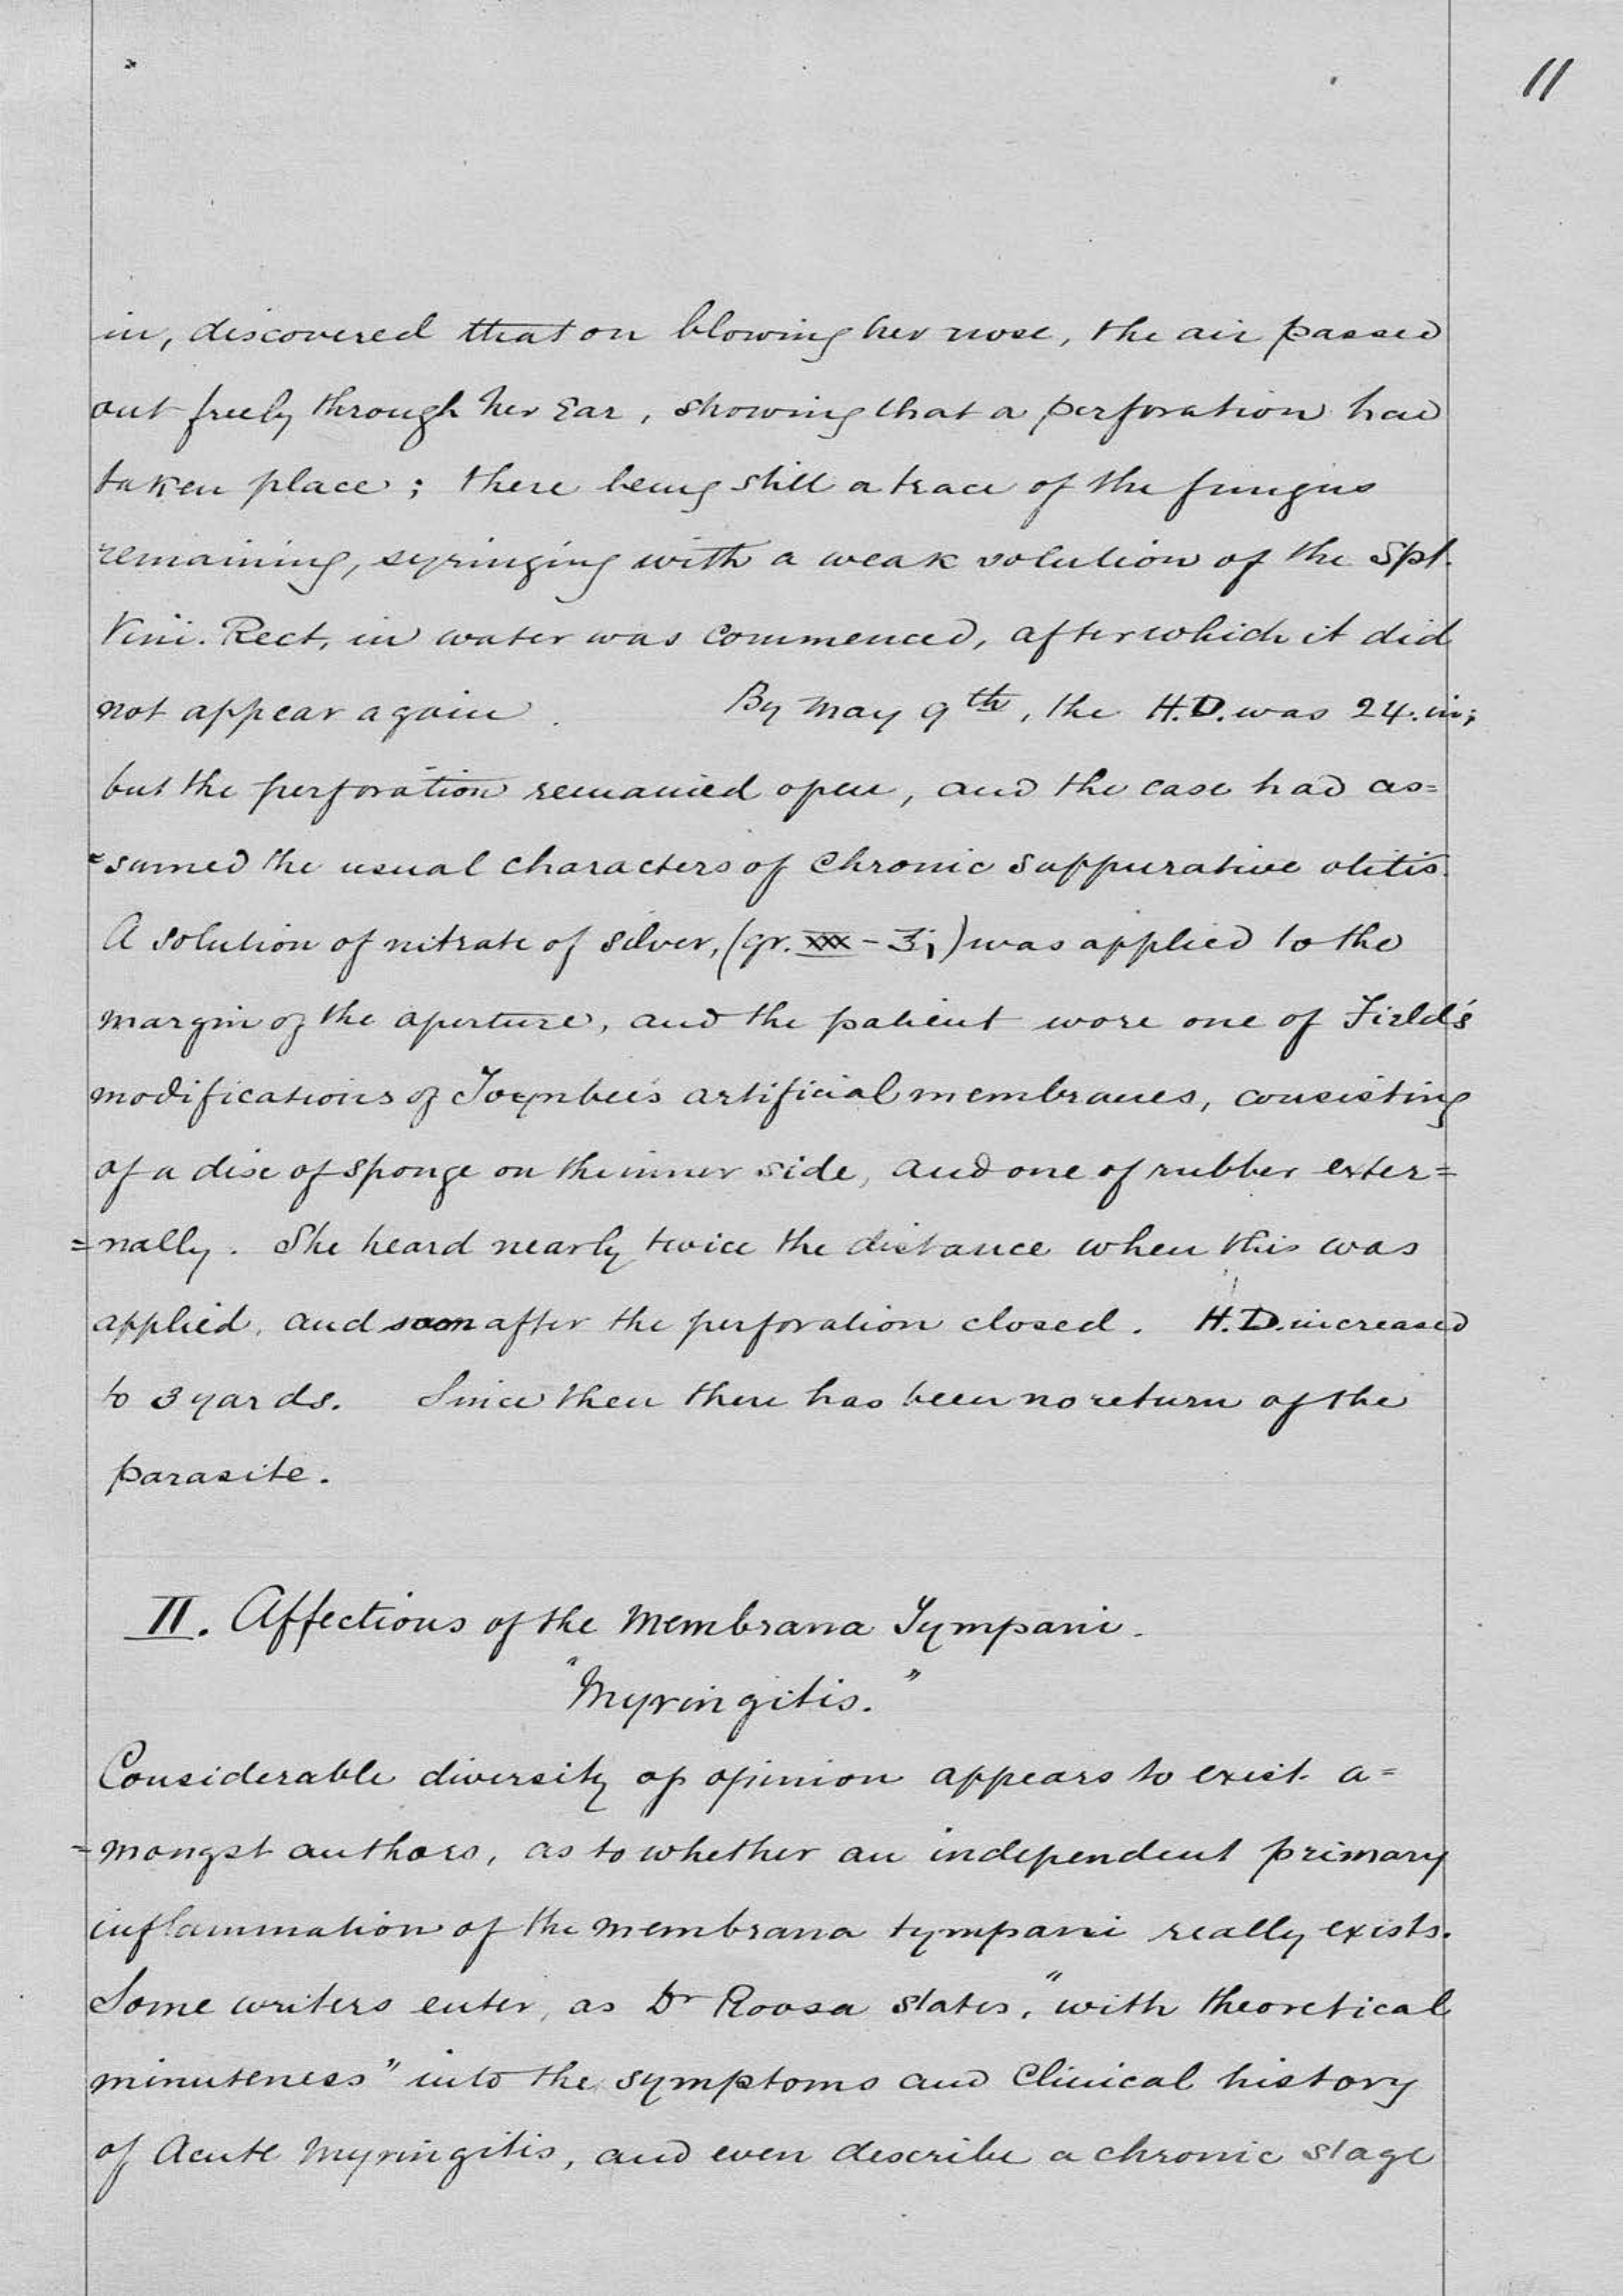 11
in, discovered that on blowing her nose, the air passed
out freely through her Ear, showing that a perforation had
taken place; there being still a trace of the fungus
remaining, syringing with a weak solution of the Spt.
Vini. Rect, in water was commenced, after which it did
not appear again. By May 9th, the H.D. was 24. in;
but the perforation remained open, and the case had as=
=sumed the usual characters of Chronic Suppurative otitis.
A solution of nitrate of silver, (gr. xxx - ʒj) was applied to the
margin of the aperture, and the patient wore one of Field's
modifications of Toynbee's artificial membranes, consisting
of a disc of sponge on the inner side, and one of rubber exter=
=nally. She heard nearly twice the distance when this was
applied, and soon after the perforation closed. H.D. increased
to 3 yards. Since then there has been no return of the
parasite.
II. Affections of the Membrana Tympani.
"Myringitis."
Considerable diversity of opinion appears to exist a=
=mongst authors, as to whether an independent primary
inflammation of the membrana tympani really exists.
Some writers enter, as Dr Roosa states, "with theoretical
minuteness" into the symptoms and Clinical history
of Acute Myringitis, and even describe a chronic stage